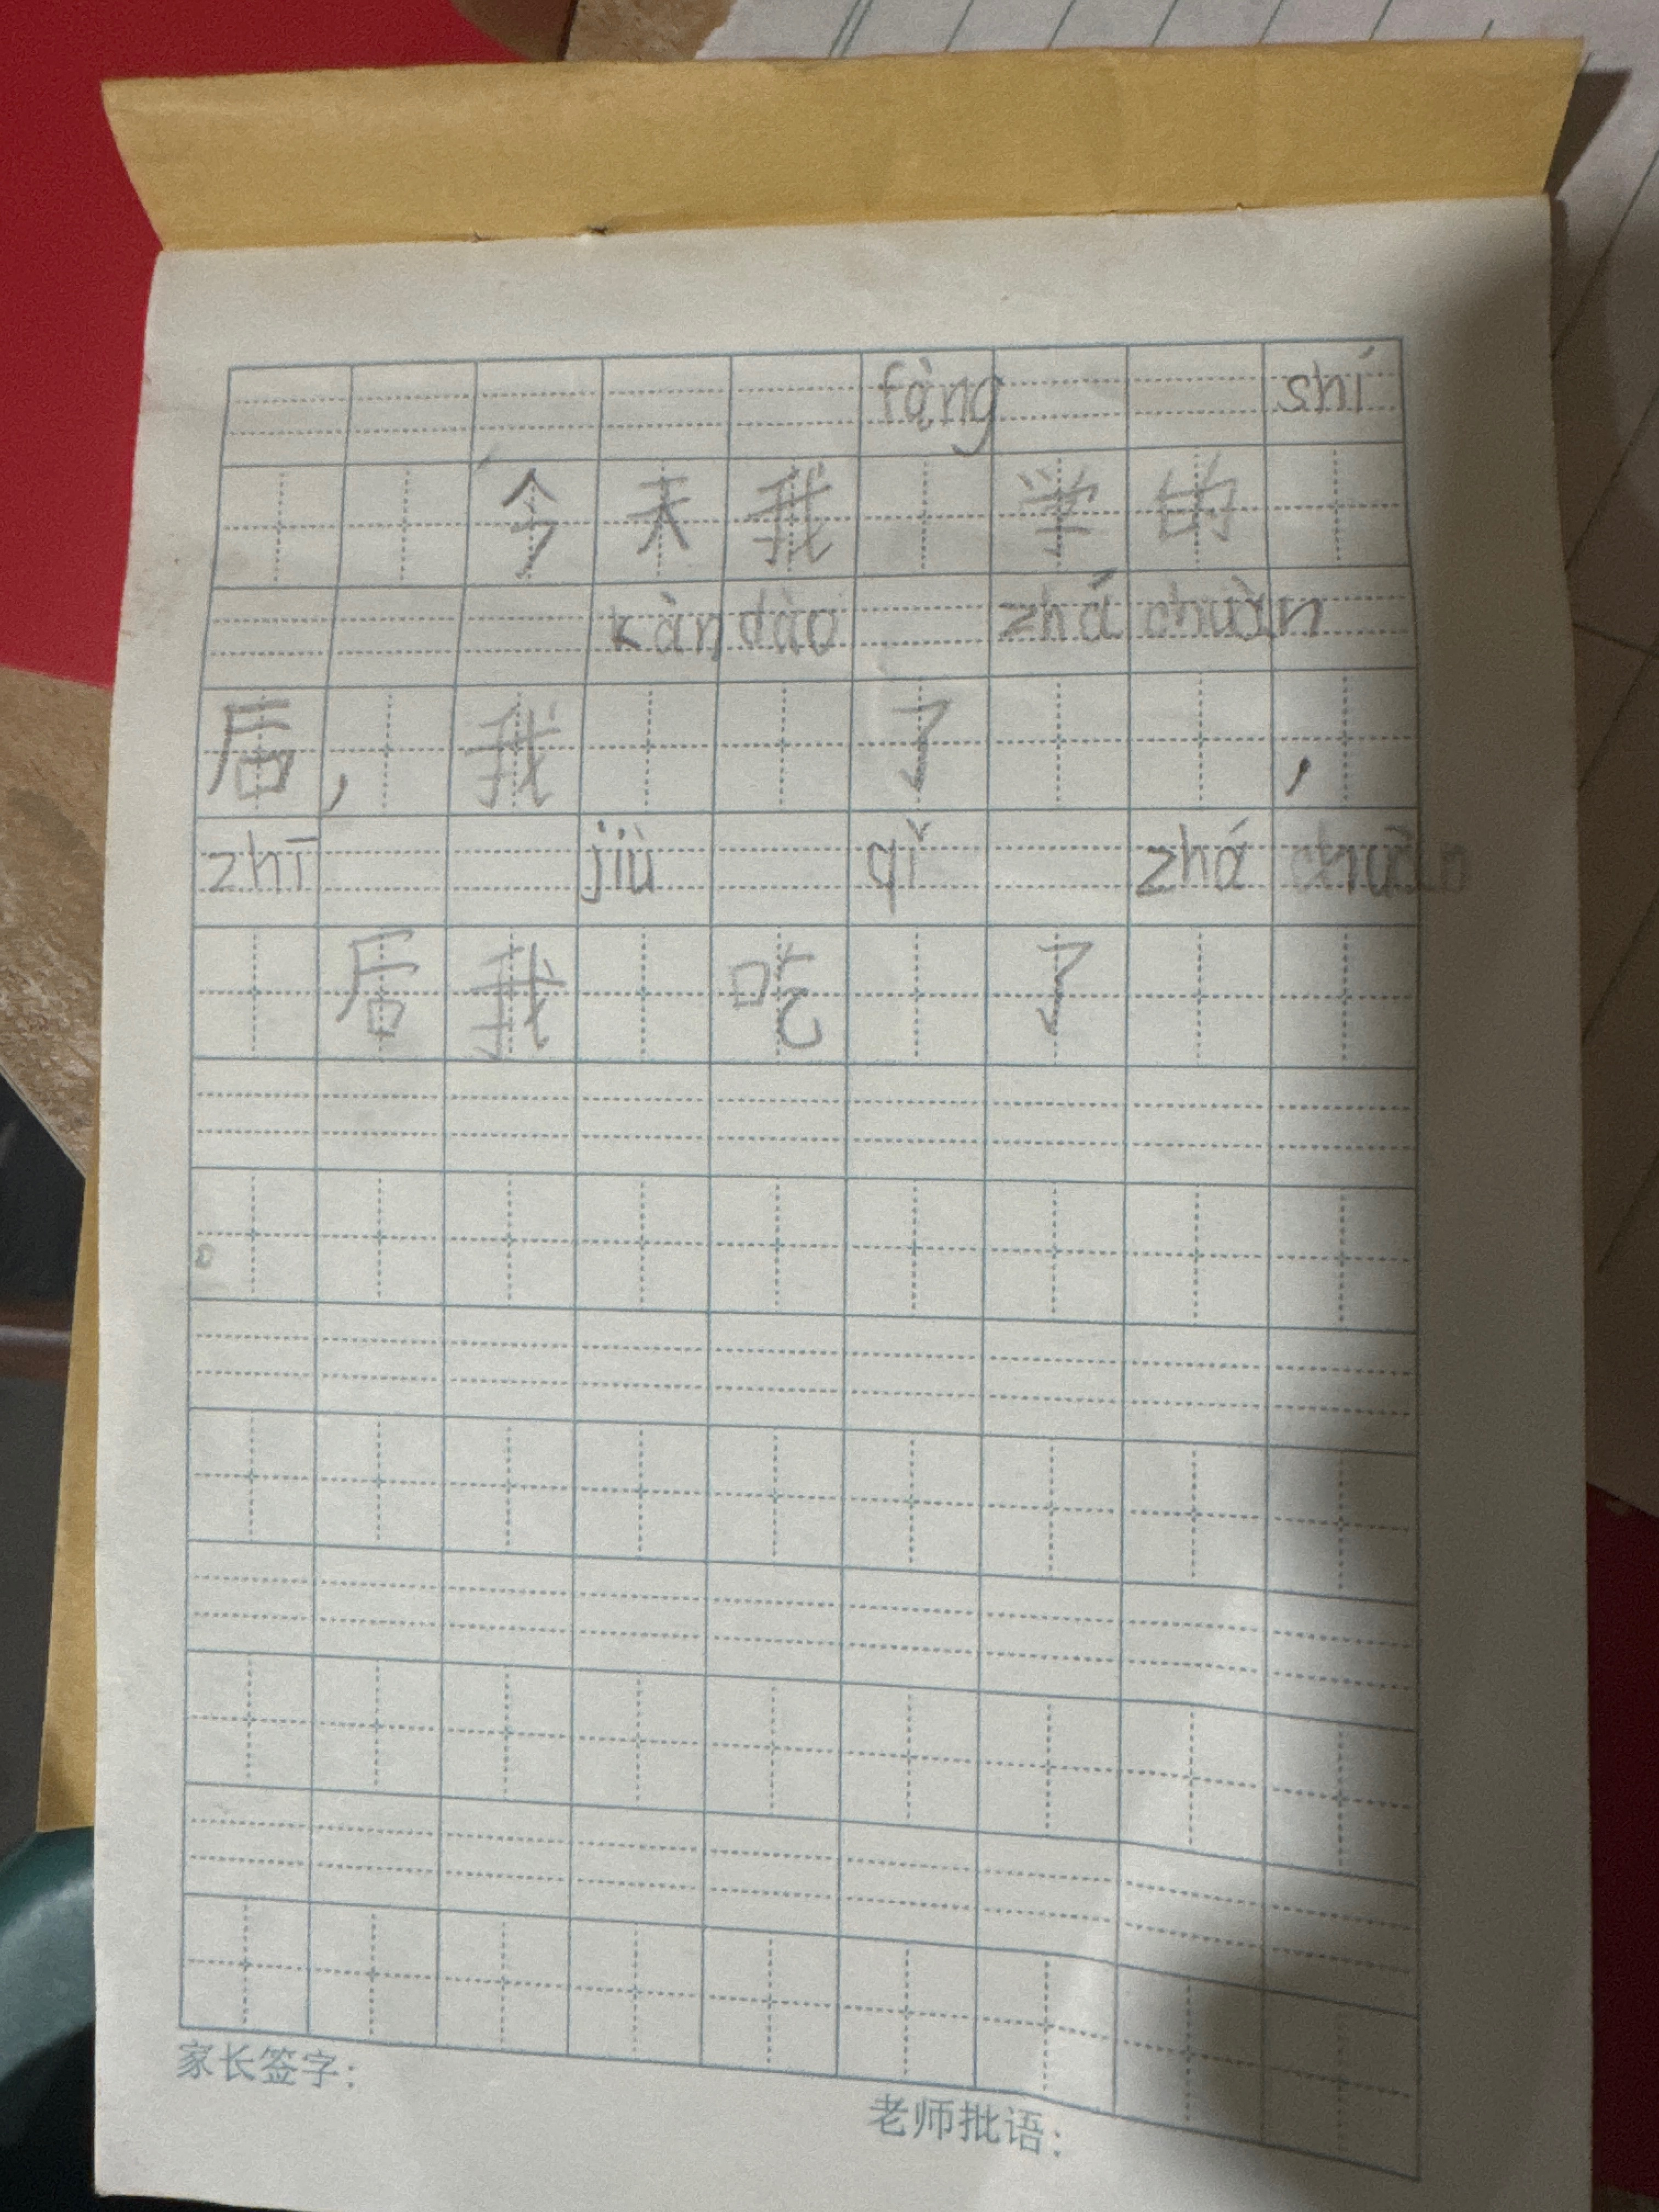 fàng shí
今天我学的
kàn dào zhá chuàn
后，我了，
zhī jiù qǐ zhá chuàn
后我吃了
。
家长签字：
老师批语：